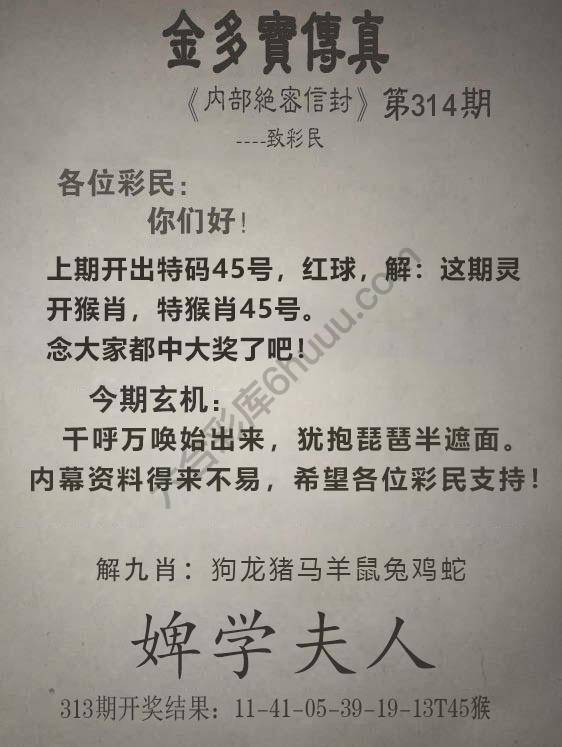 金多寶傳真
《内部絶密信封》第314期
----致彩民
各位彩民：
你们好！
上期开出特码45号，红球，解：这期灵
开猴肖，特猴肖45号。
念大家都中大奖了吧！
今期玄机：
千呼万唤始出来，犹抱琵琶半遮面。
内幕资料得来不易，希望各位彩民支持！
解九肖：狗龙猪马羊鼠兔鸡蛇
婢学夫人
313期开奖结果：11-41-05-39-19-13T45猴
六合彩库6huuu.com